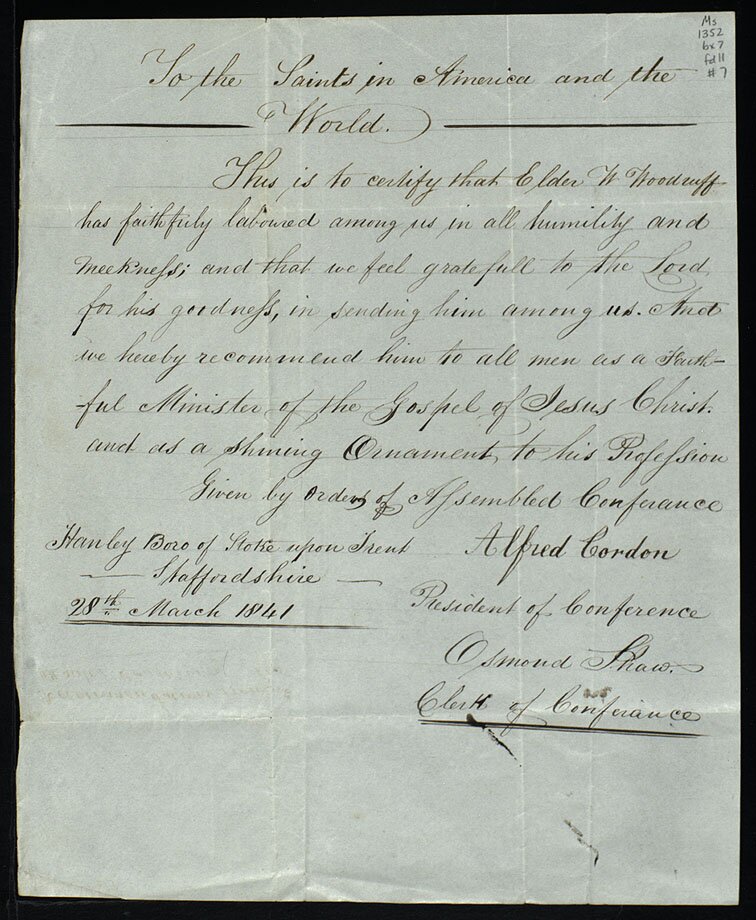 Ms
1352
bx 7
fd 11
# 7
To the Saints in America and the
World.
This is to certify that Elder W Woodruff
has faithfuly laboured among us in all humility and
meekness; and that we feel gratefull to the Lord
for his goodness, in sending him among us. And
we hereby recommend him to all men as a Faith-
-ful Minister of the Gospel of Jesus Christ.
and as a shining Ornament to his Profession
Given by order of Assembled Conferance
Hanley Boro of Stoke upon Trent
Staffordshire
28th March 1841
Alfred Cordon
President of Conference
Osmond Shaw.
Clerk of Conferance